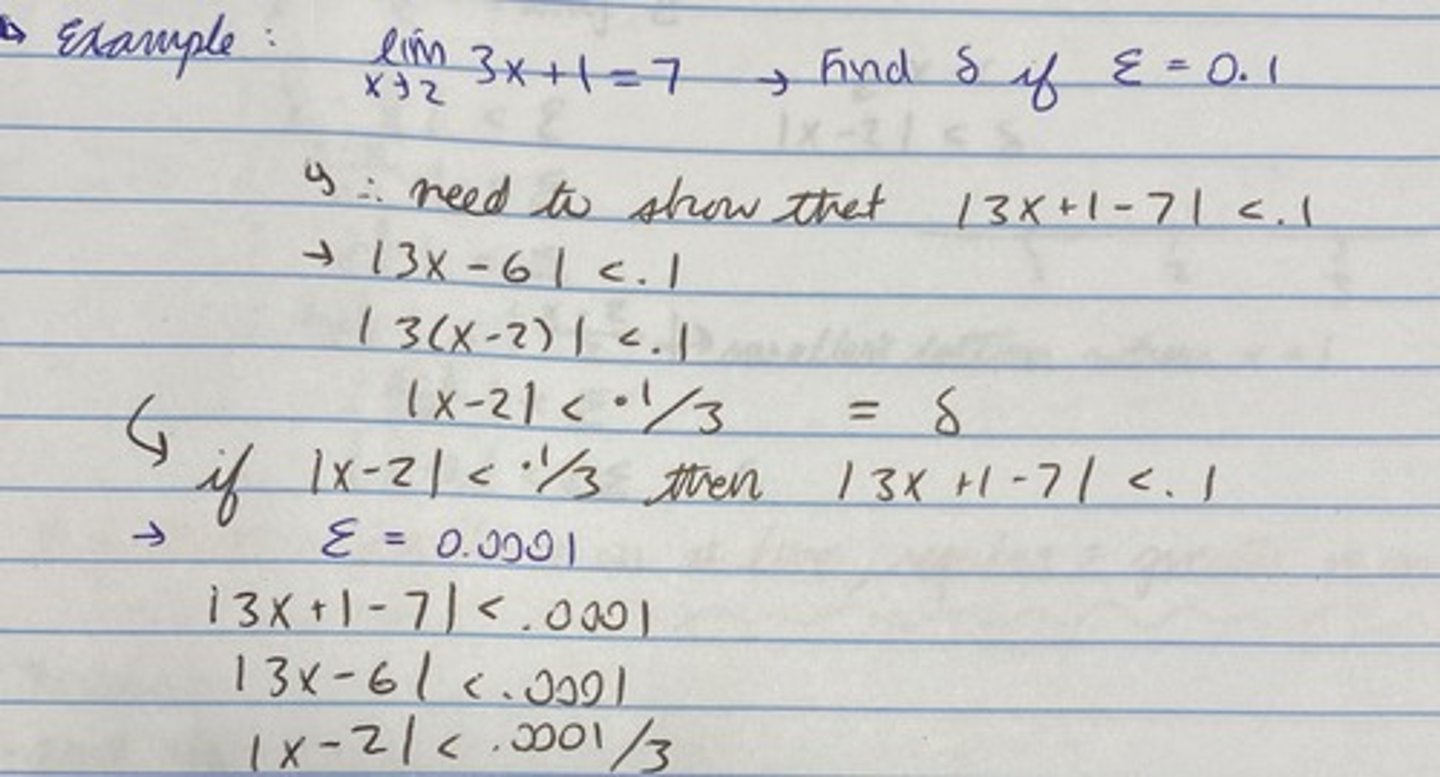 Example : lim x→2 3x+1=7 → Find δ if ε = 0.1
↳ ∴ need to show that |3x+1-7| <.1
→ |3x-6| <.1
|3(x-2)| <.1
|x-2| < .1/3 = δ
↳ if |x-2| < .1/3 then |3x+1-7| <.1
→ ε = 0.0001
|3x+1-7| < .0001
|3x-6| < .0001
|x-2| < .0001/3